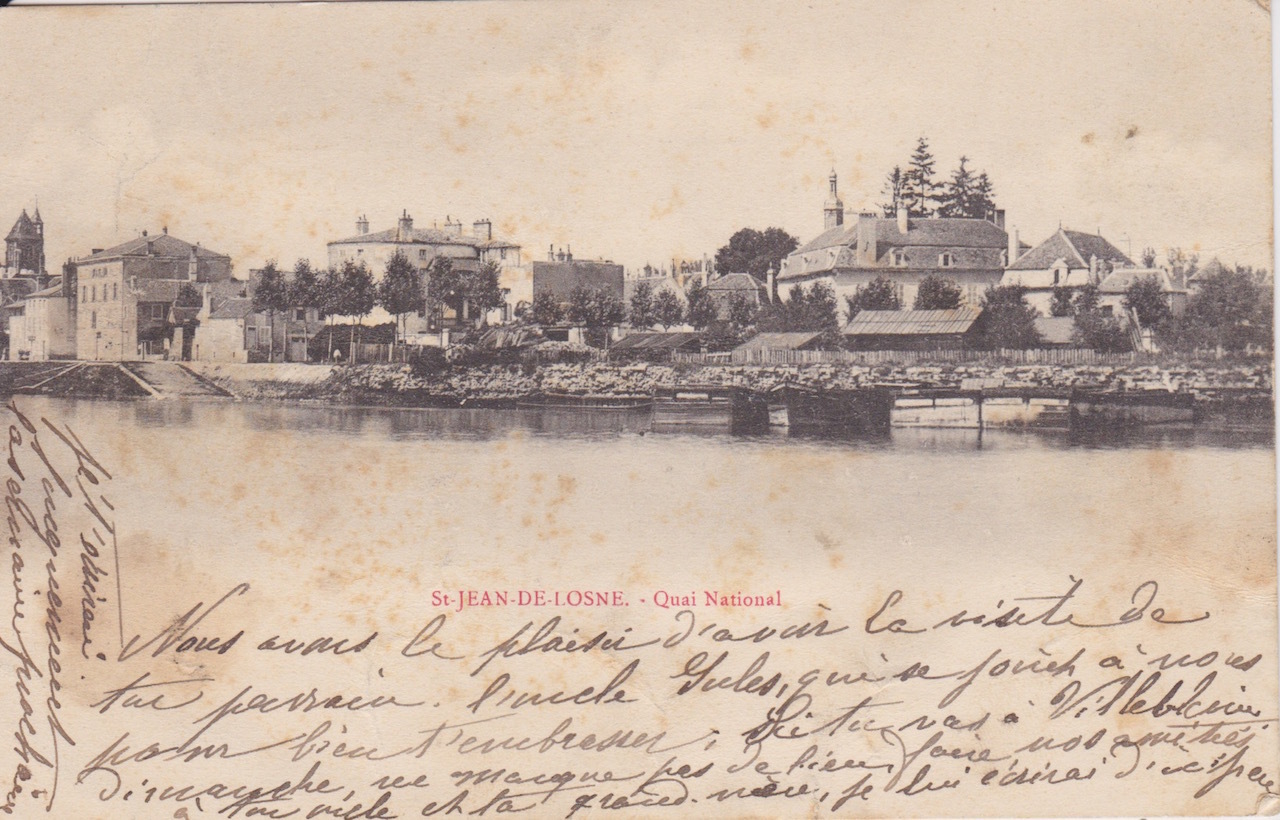 St-JEAN-DE-LOSNE. - Quai National
Nous avons le plaisir d'avoir la visite de
ton parrain. l'oncle Jules, qui se joint à nous
pour bien t'embrasser. Si tu vas à
dimanche, ne manque pas de bien faire nos amitiés
à ton oncle et ta grand-mère, je lui écrirai d'ici peu
Je t'écrirai
longuement
la semaine prochaine